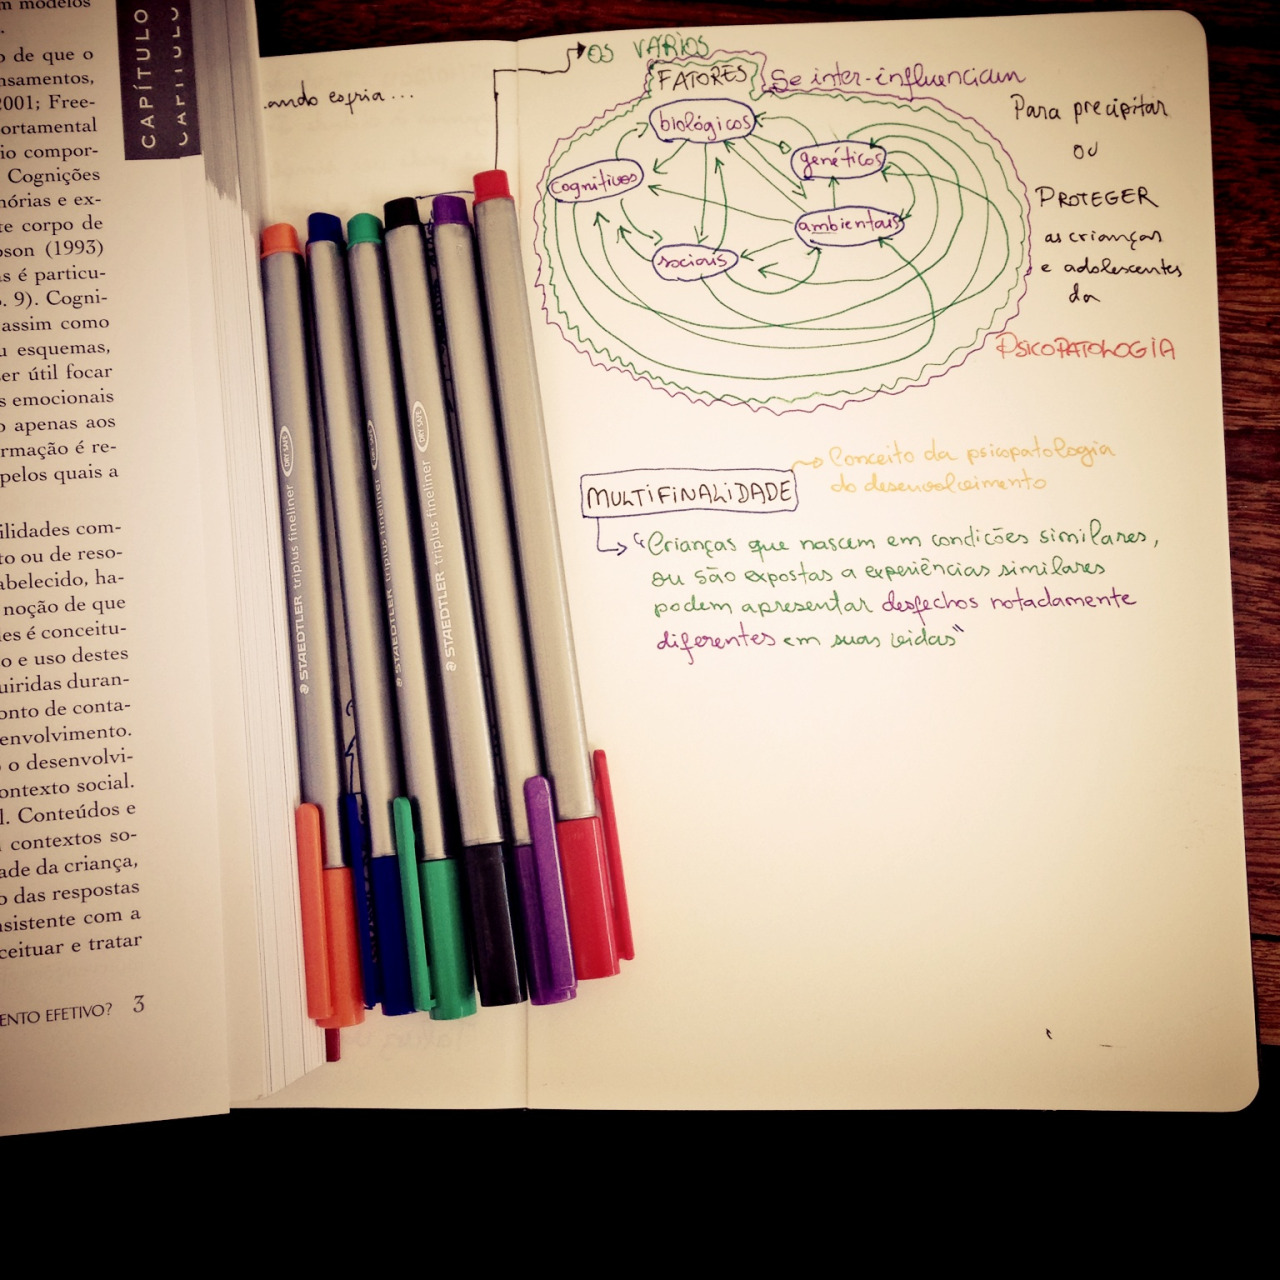 m modelos
CAPÍTULO
CAPÍTULO
o de que o
nsamentos,
2001; Free-
ortamental
io compor-
Cognições
nórias e ex-
te corpo de
oson (1993)
as é particu-
o. 9). Cogni-
assim como
u esquemas,
ser útil focar
s emocionais
o apenas aos
ormação é re-
pelos quais a
ilidades com-
to ou de reso-
abelecido, ha-
noção de que
des é conceitu-
o e uso destes
uiridas duran-
onto de conta-
envolvimento.
o o desenvolvi-
ontexto social.
l. Conteúdos e
contextos so-
ade da criança,
o das respostas
nsistente com a
ceituar e tratar
ENTO EFETIVO? 3
ando esfria...
STAEDTLER triplus fineliner DRY SAFE
STAEDTLER triplus fineliner DRY SAFE
STAEDTLER triplus fineliner DRY SAFE
OS VÁRIOS
FATORES Se inter-influenciam
biológicos
genéticos
cognitivos
ambientais
sociais
Para precipitar
OU
PROTEGER
as crianças
e adolescentes
da
PSICOPATOLOGIA
MULTIFINALIDADE
Conceito da psicopatologia
do desenvolvimento
"Crianças que nascem em condições similares,
ou são expostas a experiências similares
podem apresentar desfechos notadamente
diferentes em suas vidas"